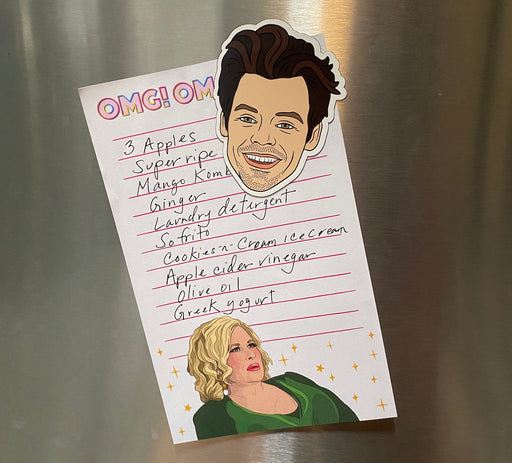 OMG! OM
3 Apples
Super ripe
Mango Kom
Ginger
Laundry detergent
Sofrito
Cookies-n-Cream ice cream
Apple cider vinegar
Olive oil
Greek yogurt